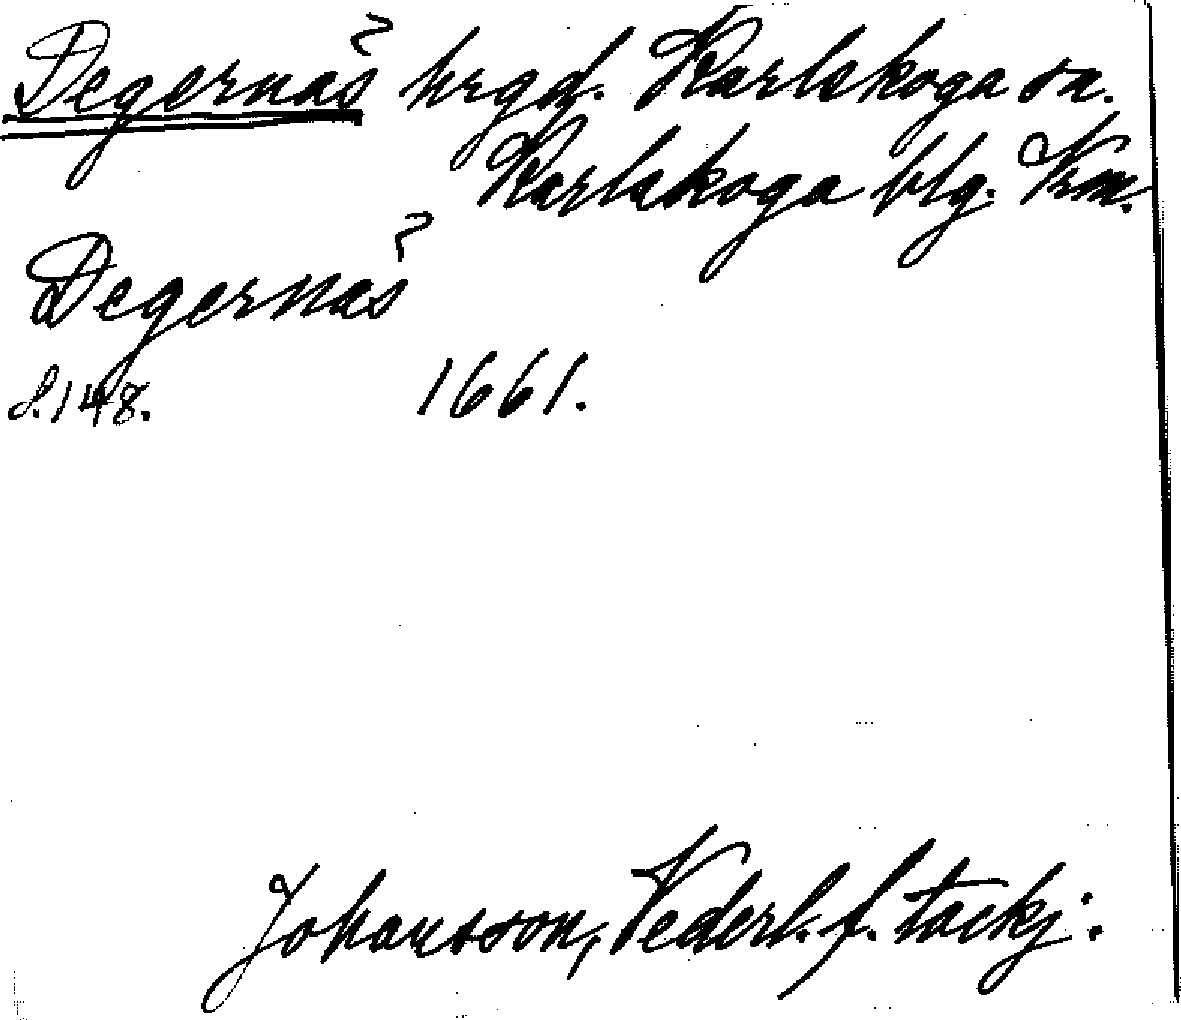 Degernäs hrgd. Karlskoga sn.
Karlskoga blg. Vrm.
Degernäs
S. 148. 1661.
Johansson, Vederl. f. tackj.